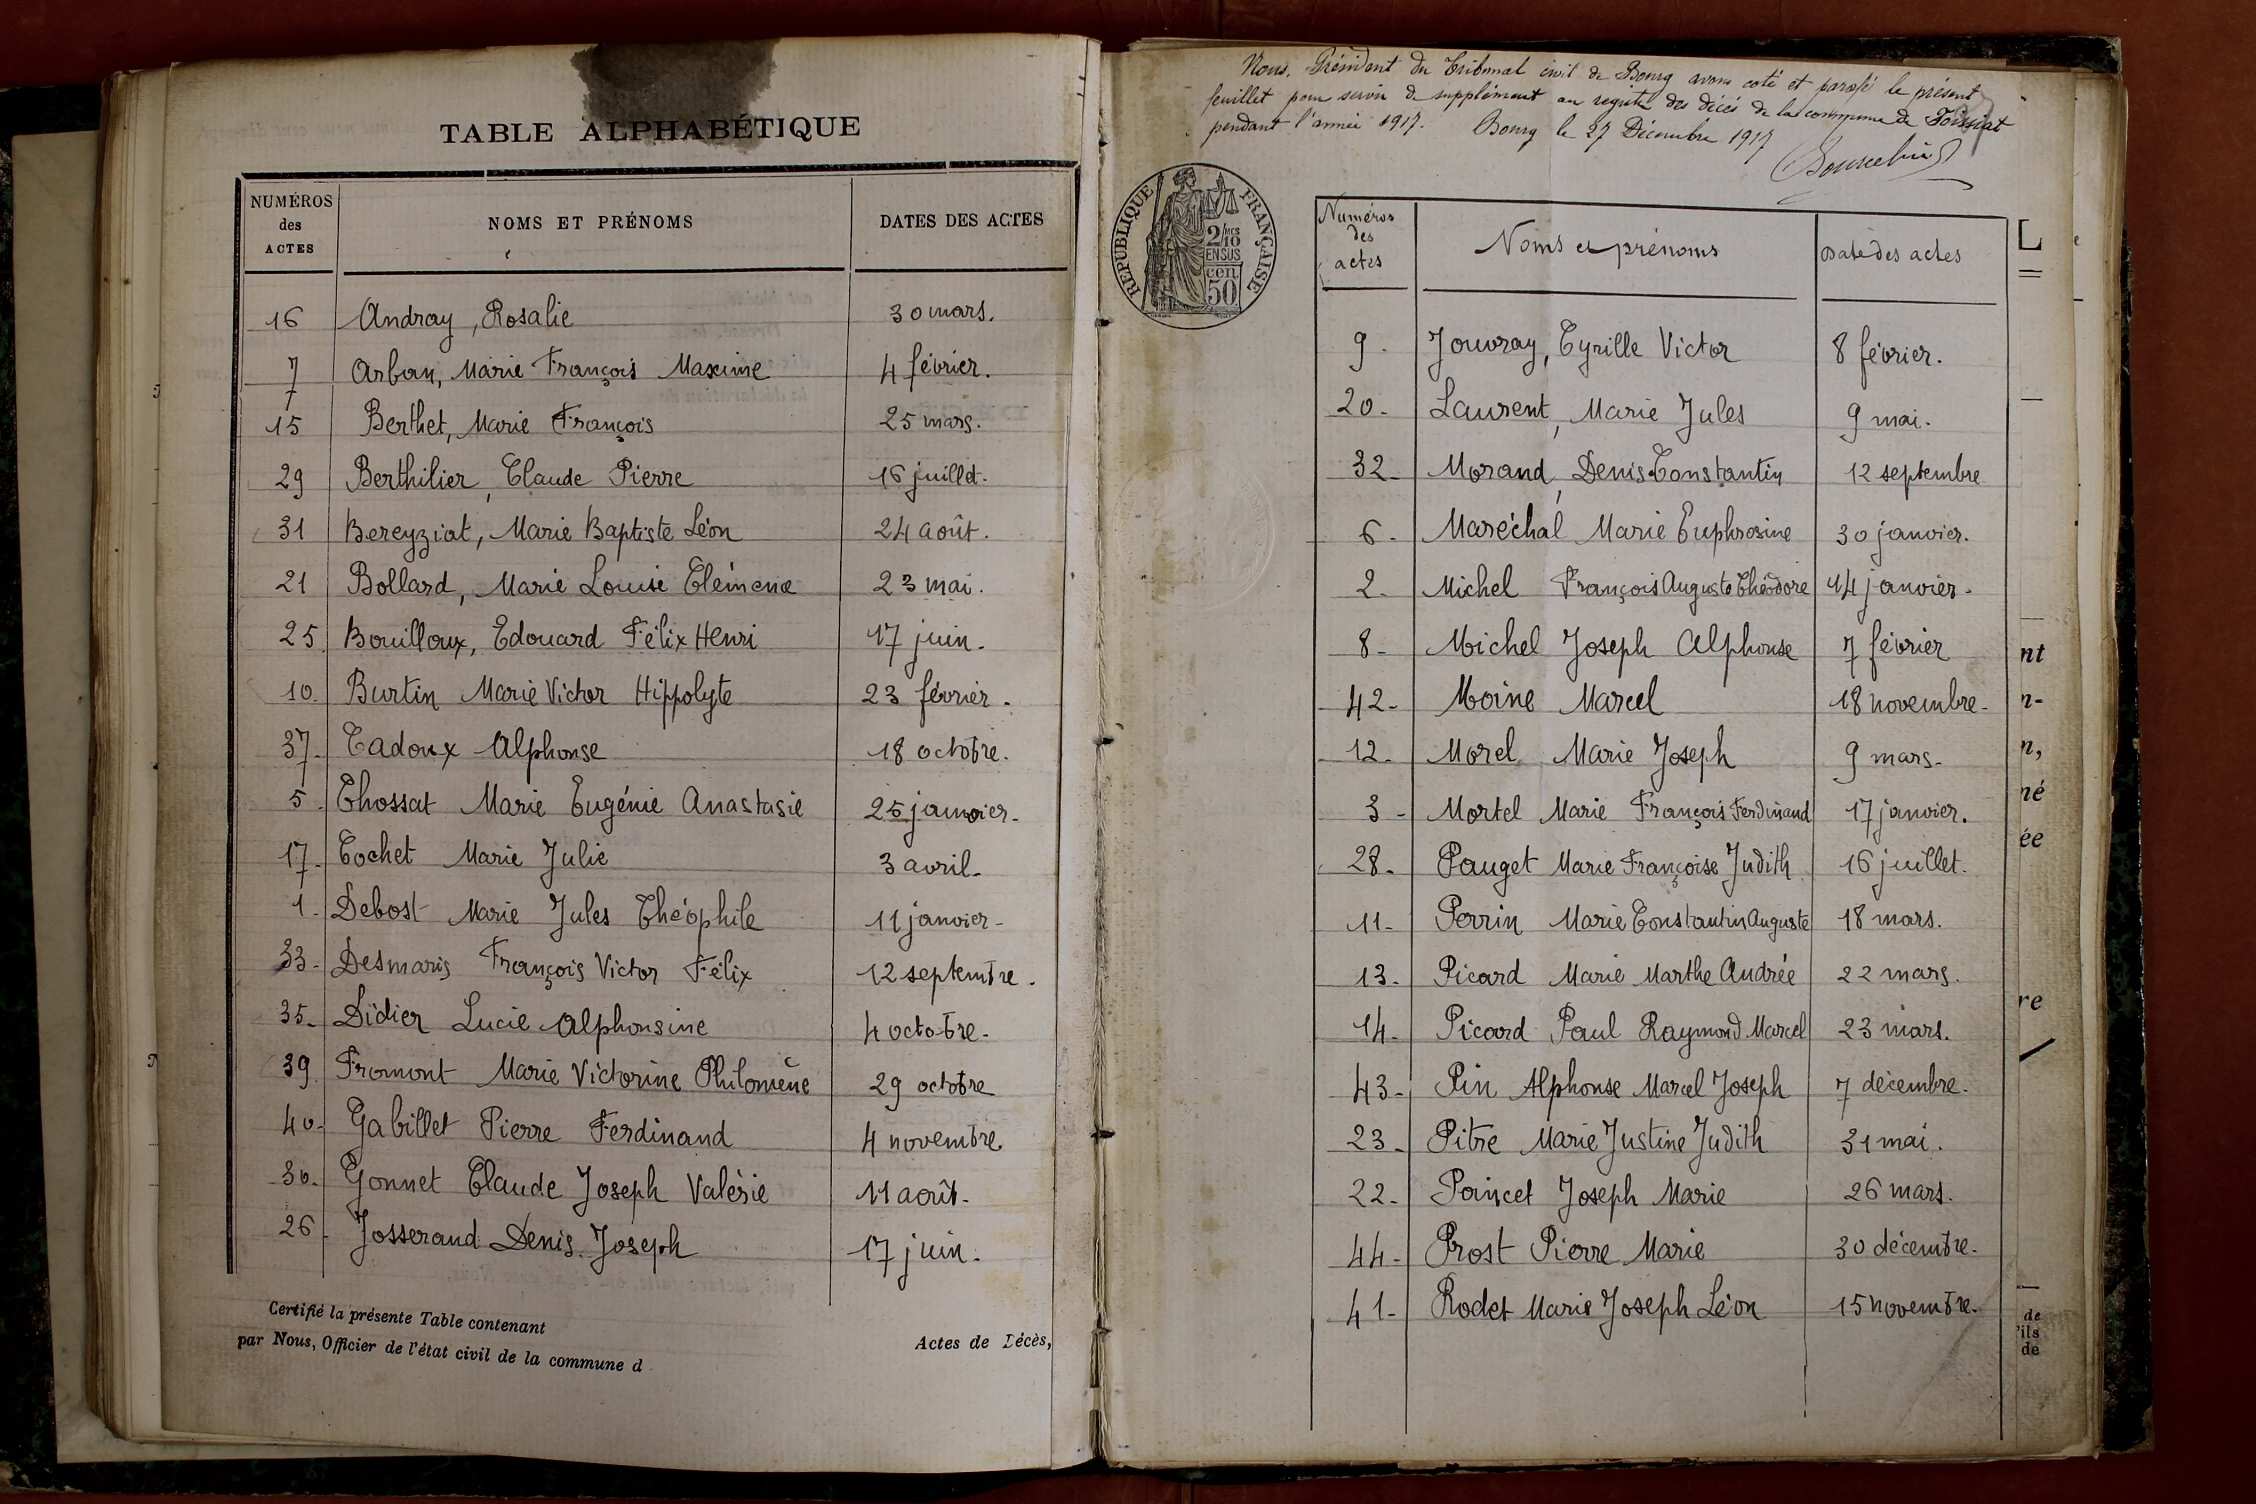 TABLE ALPHABÉTIQUE
NUMÉROS des ACTES NOMS ET PRÉNOMS DATES DES ACTES
16 Andray, Rosalie 30 mars.
7 Arban, Marie François Maxime 4 février.
15 Berthet, Marie François 25 mars.
29 Berthilier, Claude Pierre 16 juillet.
31 Bereyziat, Marie Baptiste Léon 24 août.
21 Bollard, Marie Louise Clémence 23 mai.
25 Bouilloux, Edouard Félix Henri 17 juin.
10. Burtin Marie Victor Hippolyte 23 février.
37. Cadoux Alphonse 18 octobre.
5. Chossat Marie Eugénie Anastasie 25 janvier.
17. Cochet Marie Julie 3 avril.
1. Debost Marie Jules Théophile 11 janvier.
33. Desmaris François Victor Félix 12 septembre.
35. Didier Lucie Alphonsine 4 octobre.
39 Fromont Marie Victorine Philomène 29 octobre
40. Gabillet Pierre Ferdinand 4 novembre.
30. Gonnet Claude Joseph Valérie 11 août.
26. Josserand Denis Joseph 17 juin.
Certifié la présente Table contenant Actes de Décès,
par Nous, Officier de l'état civil de la commune d
Nous, Président du Tribunal civil de Bourg avons coté et parafé le présent
feuillet pour servir de supplément au registre des décès de la commune de Foissiat
pendant l'année 1917. Bourg le 27 Décembre 1917
RÉPUBLIQUE FRANÇAISE
2/10
EN SUS
cen.
50
Numéros des actes Noms et prénoms Date des actes
9. Jouvray, Cyrille Victor 8 février.
20. Laurent, Marie Jules 9 mai.
32. Morand, Denis Constantin 12 septembre
6. Maréchal Marie Euphrosine 30 janvier.
2. Michel François Auguste Théodore 14 janvier.
8. Michel Joseph Alphonse 7 février
42. Moine Marcel 18 novembre.
12. Morel Marie Joseph 9 mars.
3. Mortel Marie François Ferdinand 17 janvier.
28. Pauget Marie Françoise Judith 16 juillet.
11. Perrin Marie Constantin Auguste 18 mars.
13. Picard Marie Marthe Andrée 22 mars.
14. Picard Paul Raymond Marcel 23 mars.
43. Pin Alphonse Marcel Joseph 7 décembre.
23. Pitre Marie Justine Judith 31 mai.
22. Poincet Joseph Marie 26 mars.
44. Prost Pierre Marie 30 décembre.
41. Rodet Marie Joseph Léon 15 novembre.
nt
n-
n,
né
ée
re
de
'ils
de